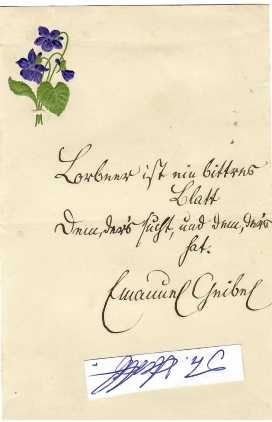 Lorbeer ist ein bittres
Blatt
Dem, der's sucht, und dem, der's
hat.
Emanuel Geibel